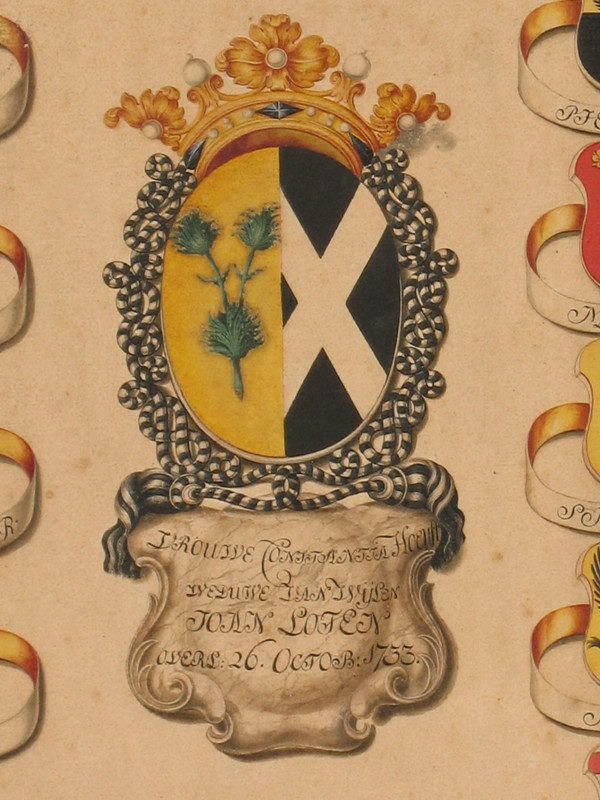 VROUWE CONSTANTIA Hoeufft
WEDUWE VAN WYLEN
JOAN LOTEN
OVERL: 26. OCTOB: 1733.